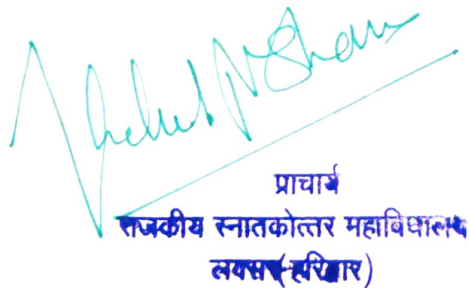 प्राचार्य
राजकीय स्नातकोत्तर महाविद्यालय
लक्सर (हरिद्वार)